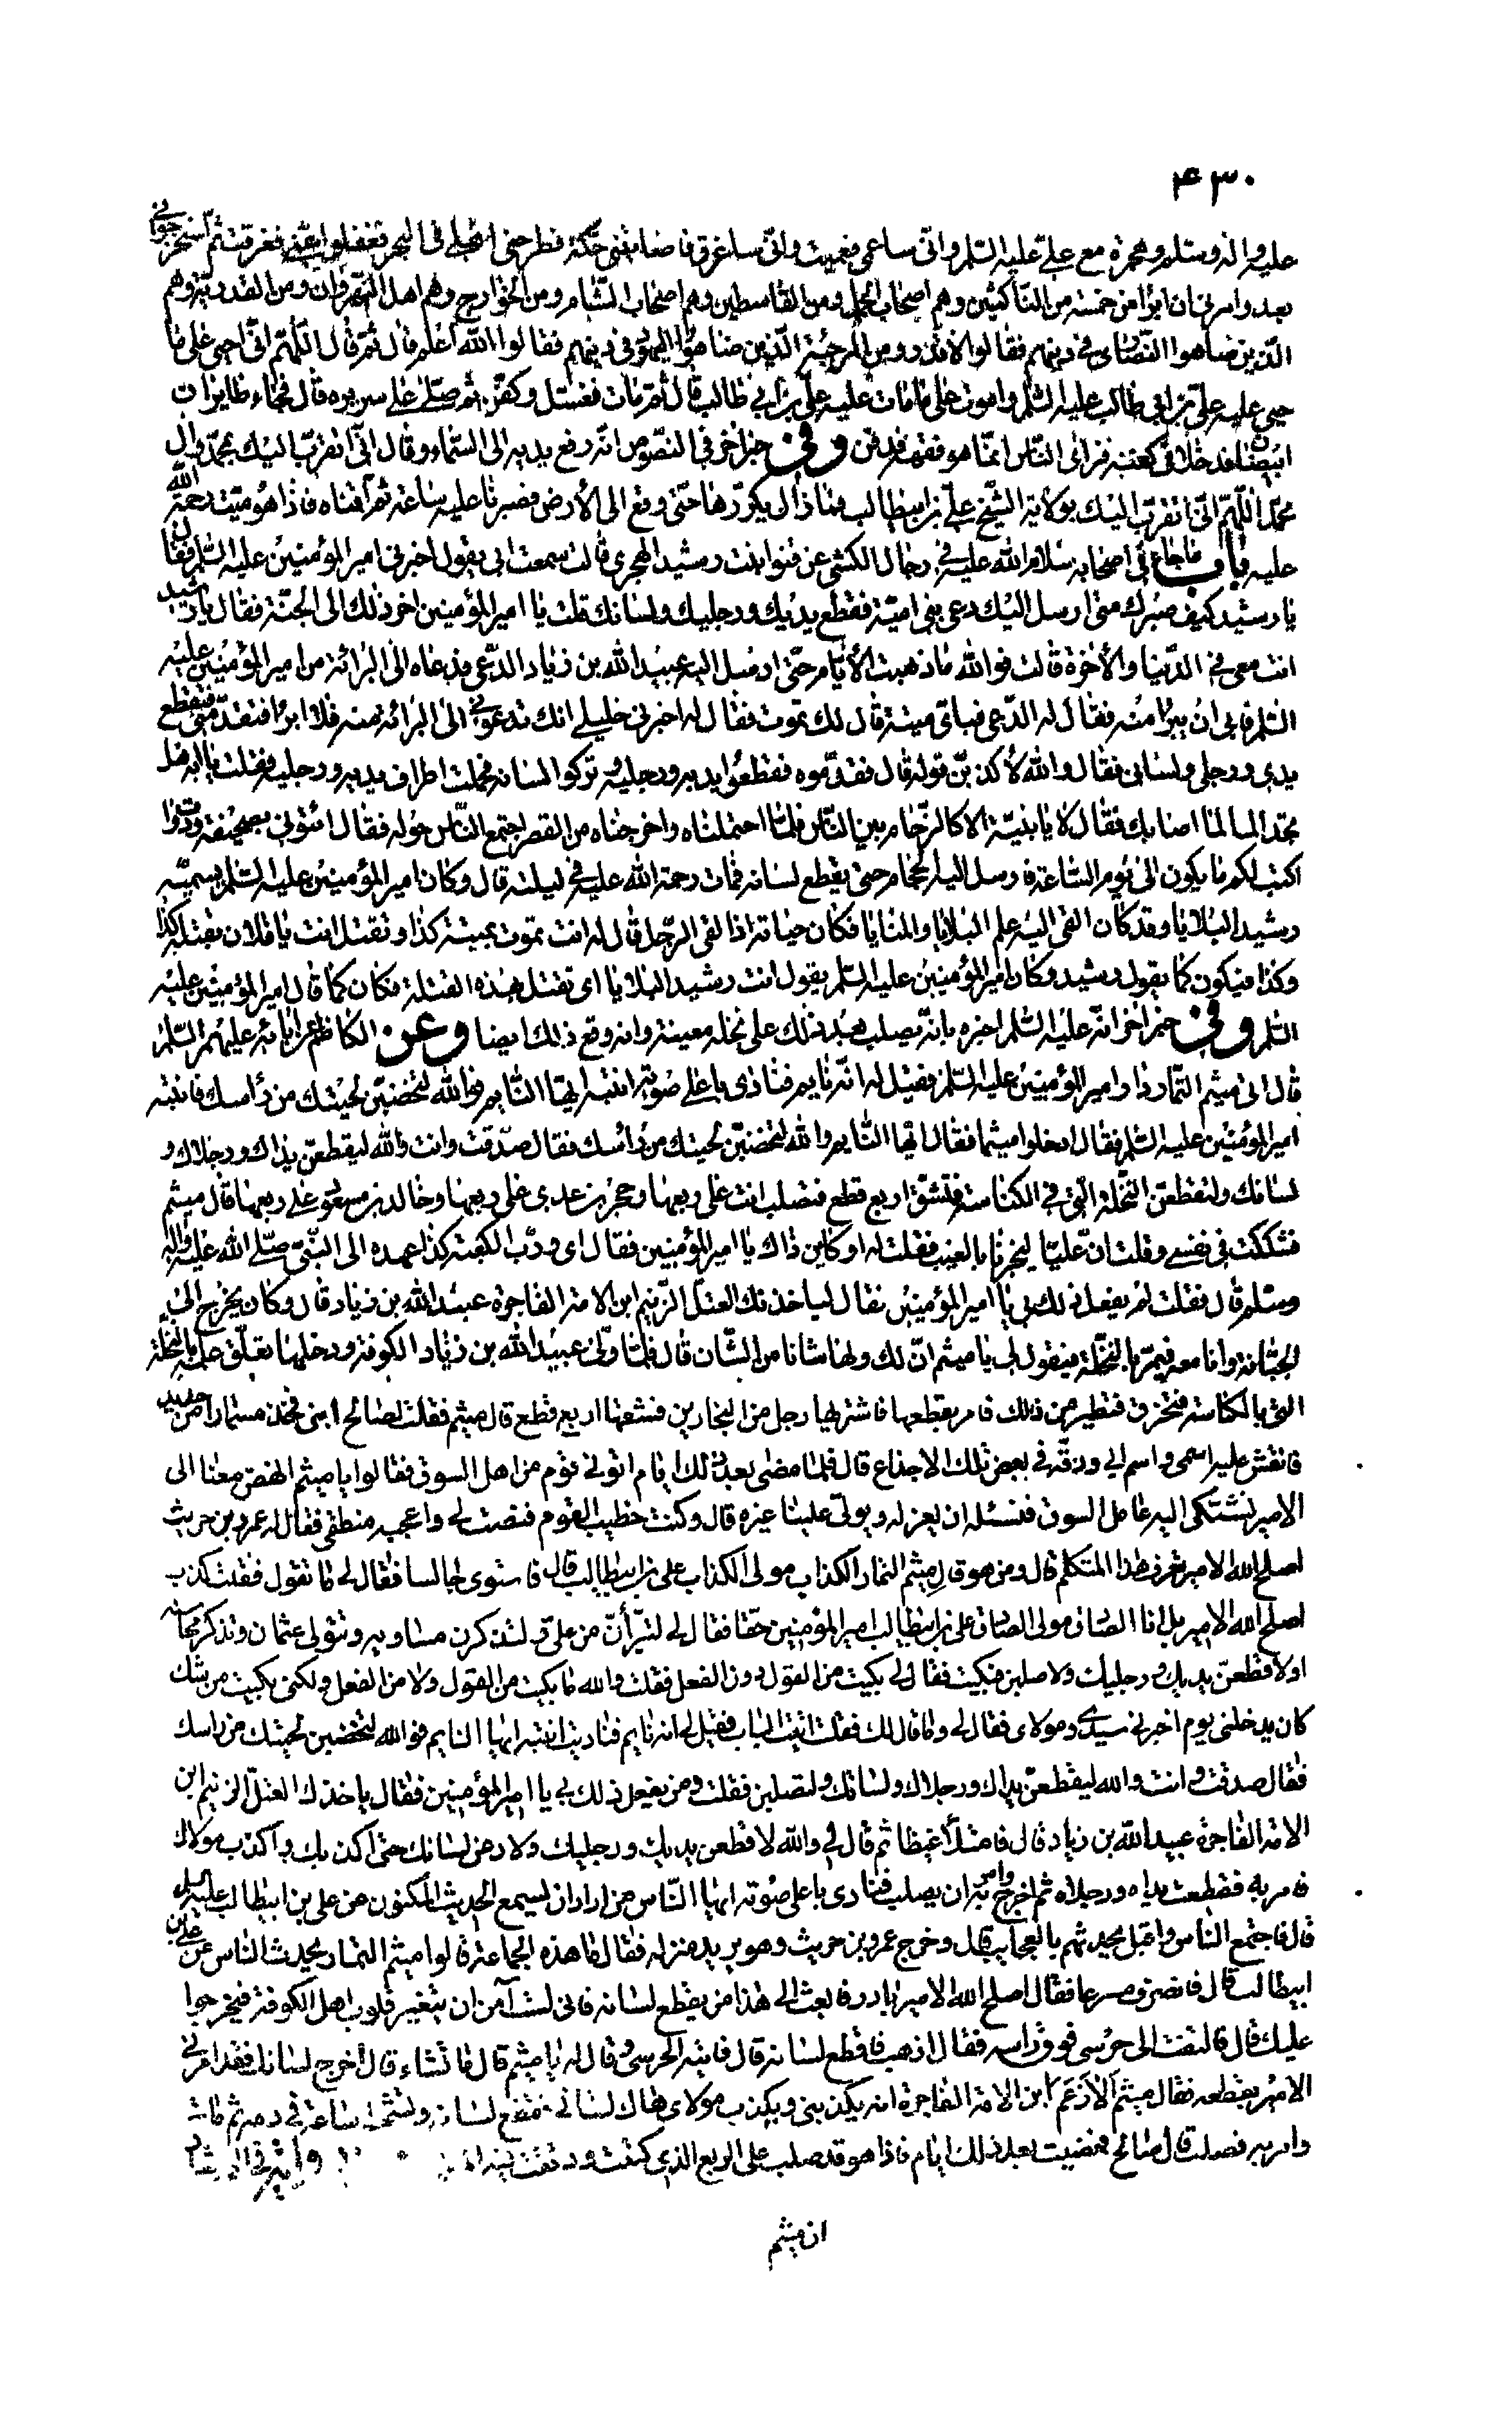 ۴۳۰
عليه واله وسلم وهجرة مع علىّ عليه السّلم وانّى ساعمى فعميت وانّى ساغرق فاصابتنى حكّة فطرحنى اهلى فى البحر فغفلوا عنّى فغرقت ثم استخرجوانى
بعد وامرنى ان ابرأ من خمسة من النّاكثين وهم اصحاب الجمل ومن القاسطين وهم اصحاب الشّام ومن الخوارج وهم اهل النّهروان ومن القدريّة وهم
الّذين ضاهوا النّصارى فى دينهم فقالوا لا قدر ومن المرجئة الّذين ضاهؤا اليهود فى دينهم فقالوا الله اعلم قال ثمّ قال اللّهمّ انّى احيى على ما
حيى عليه علىّ بن ابى طالب عليه السّلم واموت على ما مات عليه علىّ بن ابى طالب قال ثمّ مات فغسّل وكفّن ثم صلّى على سريره قال فجاء طايران
ابيضان فدخلا فى كفنه فرأى النّاس انمّا هو فقهه فدفن وفى خبر اخر فى النصّوص انّه رفع يديه الى السّماء وقال انّى اتقرّب اليك بمحمّد وال
محمّد اللّهمّ انّى اتقرّب اليك بولاية الشّيخ علىّ بن ابيطالب فما زال يكرّرها حتّى وقع الى الأرض فصبرنا عليه ساعة ثم اقمناه فاذا هو ميّت رحمة الله
عليه باب ما جاء فى اصحابه سلام الله عليه فى رجال الكشى عن قنوا بنت رشيد الهجرى قالت سمعت ابى يقول اخبرنى امير المؤمنين عليه السّلم فقال
يا رشيد كيف صبرك متى ارسل اليك دعى بنى اميّة فقطع يديك ورجليك ولسانك قلت يا امير المؤمنين اخر ذلك الى الجنّة فقال يا رشيد
انت معى فى الدّنيا والأخرة قالت فوالله ما ذهبت الأيّام حتّى ارسل اليه عبيد الله بن زياد الدّعى فدعاه الى البرائة من امير المؤمنين عليه
السّلم فابى ان يبرأ منه فقال له الدّعى فباىّ ميتة قال لك تموت فقال له اخبرنى خليلى انك تدعونى الى البرائة منه فلا ابرأ فتقدّمنى فتقطع
يدى ورجلى ولسانى فقال والله لأكذبنّ قوله قال فقدّموه فقطعوا يديه ورجليه وتركوا لسانه فحملت اطراف يديه ورجليه فقلت يا ابه هل
تجد الما لما اصابك فقال لا يا بنيّة الا كالزّحام بين النّاس فلمّا احتملناه واخرجناه من القصر اجتمع النّاس حوله فقال ائتونى بصحيفة ودوات
اكتب لكم ما يكون الى يوم السّاعة فارسل اليه الحجّام حتى يقطع لسانه فمات رحمة الله عليه فى ليلته قال وكان امير المؤمنين عليه السّلم يسمّيه
رشيد البلايا وقد كان القى اليه علم البلايا والمنايا فكان حياته اذا لقى الرّجل قال له انت تموت بميتة كذا وتقتل انت يا فلان بقتلة كذا
وكذا فيكون كما يقول رشيد وكان امير المؤمنين عليه السّلم يقول انت رشيد البلايا اى تقتل بهذه القتلة فكان كما قال امير المؤمنين عليه
السّلم وفى خبر اخر انّه عليه السّلم اخبره بانّه يصلب بعد ذلك على نخلة معينة وانه وقع ذلك ايضا وعن الكاظم عن ابائه عليهم السّلم
قال اتى ميثم التمار دار امير المؤمنين عليه السّلم فقيل له انّه نايم فنادى باعلى صوته انتبه ايّها النّايم فوالله لتخضبنّ لحيتك من رأسك فانتبه
امير المؤمنين عليه السّلم فقال ادخلوا ميثما فقال ايّها النّايم والله لتخضبنّ لحيتك من رأسك فقال صدقت وانت والله ليقطعنّ يداك ورجلاك و
لسانك ولتقطعنّ النّخلة الّتى فى الكناسة فتشقّ اربع قطع فتصلب انت على ربعها وحجر بن عدى على ربعها وخالد بن مسعود على ربعها قال ميثم
فشككت فى نفسى وقلت انّ عليّا ليخبرنا بالغيب فقلت له او كاين ذاك يا امير المؤمنين فقال اى وربّ الكعبة كذا عهده الى النّبىّ صلّى الله عليه واله
وسلّم قال فقلت لم يفعل ذلك بى يا امير المؤمنين فقال ليأخذنك العتل الزّنيم ابن الامة الفاجرة عبيد الله بن زياد قال وكان يخرج الى
الجبّانة وانا معه فيمرّ بالنّخلة فيقول لى يا ميثم انّ لك ولها شانا من الشّان قال فلمّا ولّى عبيد الله بن زياد الكوفة ودخلها تعلّق علمه بالنّخلة
التى بالكناسة فتخرق فتطير من ذلك فامر بقطعها فاشتريها رجل من النجارين فشقها اربع قطع قال ميثم فقلت لصالح ابنى فخذ مسمارا من حديد
فانقش عليه اسمى واسم ابى ودقّه فى بعض تلك الاجذاع قال فلمّا مضى بعد ذلك ايام اتونى قوم من اهل السوق فقالوا يا ميثم انهض معنا الى
الامير نشتكى اليه عامل السوق فنسئله ان يعزله ويولّى علينا غيره قال وكنت خطيب القوم فنصت لى واعجبه منطقى فقال له عمرو بن حريث
اصلح الله الامير تعرف هذا المتكلم قال ومن هو قال ميثم التمار الكذاب مولى الكذاب على بن ابيطالب قال فاستوى جالسا فقال لى ما تقول فقلت كذب
اصلح الله الامير بل انا الصادق مولى الصادق على بن ابيطالب امير المؤمنين حقّا فقال لى لتبرّأنّ من علىّ ولتذكرن مساويه وتتولى عثمان وتذكر محاسنه
اولاقطعنّ يديك ورجليك ولاصلبن فبكيت فقال لى بكيت من القول دون الفعل فقلت والله ما بكيت من القول ولا من الفعل ولكنى بكيت من شك
كان يدخلنى يوم اخبرنى سيدى ومولاى فقال لى وما قال لك فقلت اتيت الباب فقيل لى انه نايم فناديت انتبه ايها النايم فوالله لتخضبن لحيتك من راسك
فقال صدقت وانت والله ليقطعنّ يداك ورجلاك ولسانك ولتصلبن فقلت ومن يفعل ذلك بى يا امير المؤمنين فقال يأخذك العتلّ الزنيم ابن
الامة الفاجرة عبيد الله بن زياد قال فامتلأ غيظا ثم قال لى والله لاقطعن يديك ورجليك ولادعن لسانك حتى اكذبك واكذب مولاك
فامر به فقطعت يداه ورجلاه ثم اخرج وامر به ان يصلب فنادى باعلى صوته ايها النّاس من اراد ان يسمع الحديث المكنون عن على بن ابيطالب عليه السلم
قال فاجتمع الناس واقبل يحدثهم بالعجايب قال وخرج عمرو بن حريث وهو يريد منزله فقال ما هذه الجماعة قالوا ميثم التمار يحدث الناس عن على بن
ابيطالب قال فانصرف مسرعا فقال اصلح الله الامير بادر فابعث الى هذا من يقطع لسانه فانى لست آمن ان يتغير قلوب اهل الكوفة فيخرجوا
عليك قال فالتفت الى حرسى فوق راسه فقال اذهب فاقطع لسانه قال فاتيه الحرسى وقال له يا ميثم قال ما تشاء قال اخرج لسانك فقد امرنى
الامير بقطعه فقال ميثم الا زعم ابن الامة الفاجرة انه يكذبنى ويكذب مولاى هاك لسانى فقطع لسانه وتشحّط ساعة فى دمه ثم مات
وامر به فصلب قال صالح فمضيت بعد ذلك ايام فاذا هو قد صلب على الربع الذى كنت ودققت فيه
ان ميثم